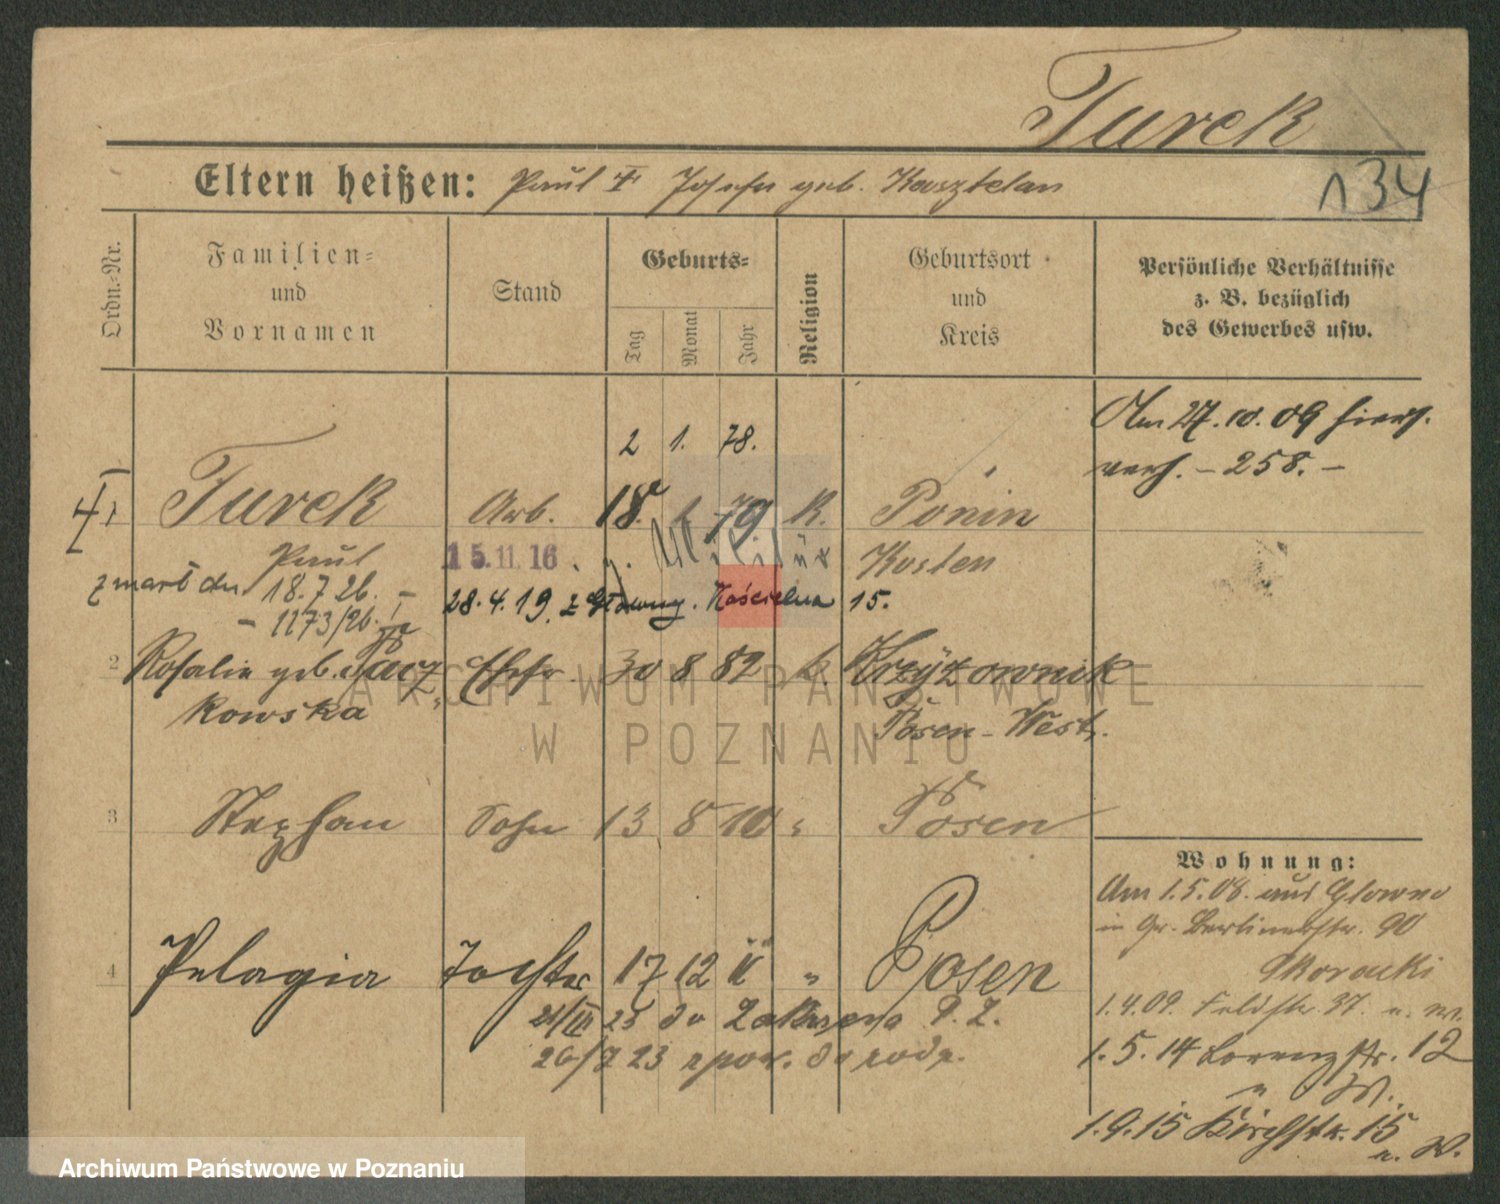 Turek
134
Eltern heißen: Paul u. Josefa geb. Kasztelan
Ordn.-Nr.
Familien-
und
Vornamen
Stand
Geburts-
Tag
Monat
Jahr
Religion
Geburtsort
und
Kreis
Persönliche Verhältnisse
z. B. bezüglich
des Gewerbes usw.
Am 27.10.09 hiers.
verh. – 258. –
2 1. 78.
Turek Arb. 18. 1 79. K. Ponin
Paul 15.11.16 Militär Kosten
zmarł dn. 18.7.26. –
– 1173/26.
28.4.19. z Główny. Kościelna 15.
2 Rosalie geb. Pacz- Ehefr. 30 8 82 k. Krzÿzownik
kowska Posen-West.
3 Stephan Sohn 13 8 10 " Posen
4 Pelagia Tochter 17 12 11 " Posen
21/III 23 do Zakrzewa P. Z.
26/7 23 spow. do rodz.
Wohnung:
Am 1.5.08. aus Glowno
in Gr. Berlinerstr. 90
Skoracki
1.4.09. Feldstr. 37. u. W.
1.5.14 Lorenzstr. 12
u. W.
1.9.15 Kirchstr. 15
u. W.
ARCHIWUM PAŃSTWOWE
W POZNANIU
Archiwum Państwowe w Poznaniu